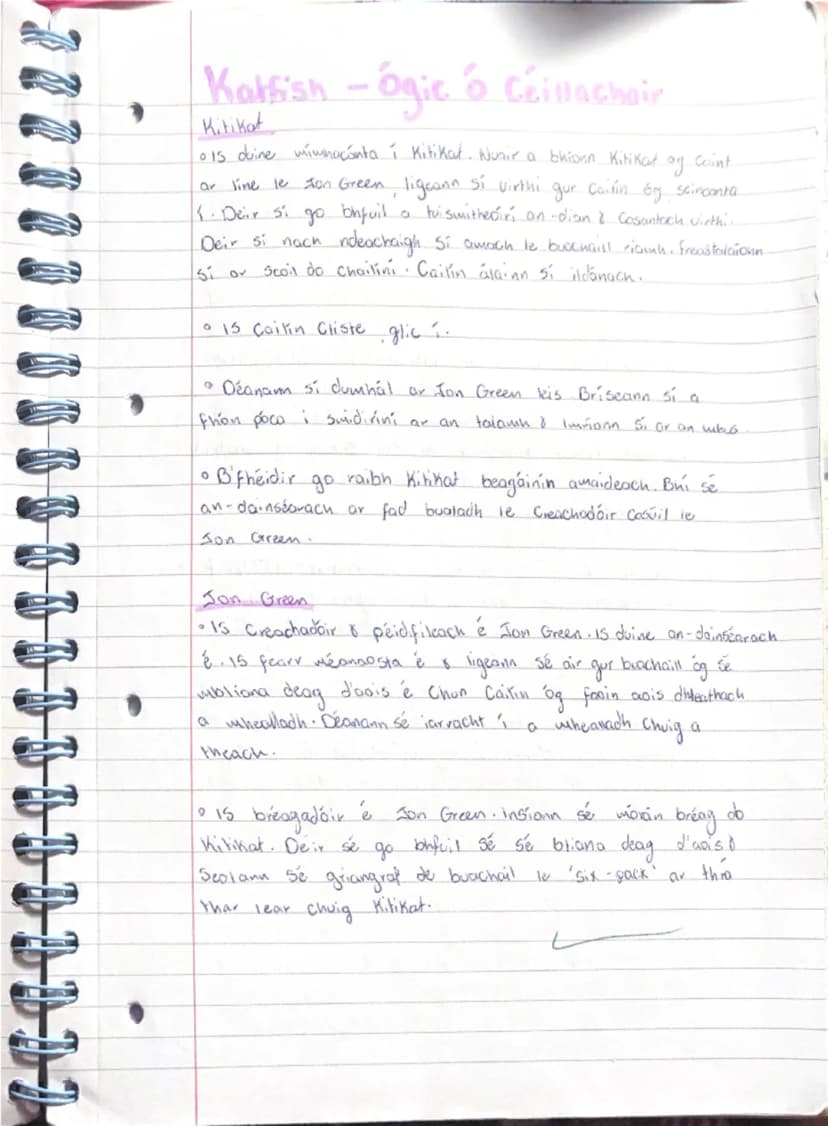 Katfish - Ógie Ó Céilleachair
Kitikat
o Is duine mímhacánta í Kitikat. Nuair a bhíonn Kitikat ag caint
ar líne le Jon Green, ligeann sí uirthi gur cailín óg soineanta
í. Deir sí go bhfuil a tuismitheoirí an-dian & cosantach uirthi.
Deir sí nach ndeachaigh sí amach le buachaill riamh. Freastalaíonn
sí ar scoil do chailíní. Cailín álainn sí ildánach.
o Is cailín cliste, glic í.
o Déanann sí dumhál ar Jon Green leis Briseann sí a
fhón póca i smidiríní ar an talamh & imíonn sí ar an mbus
o B'fhéidir go raibh Kitikat beagáinín amaideach. Bhí sé
an-dainséarach ar fad bualadh le creachadóir cosúil le
Jon Green.
Jon Green
o Is creachadóir & péidifileach é Jon Green. Is duine an-dainséarach
é. Is fearr méanaosta é & ligeann sé air gur buachaill óg sé
mbliana deag d'aois é chun cailín óg faoin aois dhleathach
a mhealladh. Déanann sé iarracht í a mhealladh chuig a
theach.
o Is bréagadóir é Jon Green. Insíonn sé mórán bréag do
Kitikat. Deir sé go bhfuil sé sé bliana deag d'aois &
Seolann sé griangraf de buachaill le 'six-pack' ar thrá
thar lear chuig Kitikat.